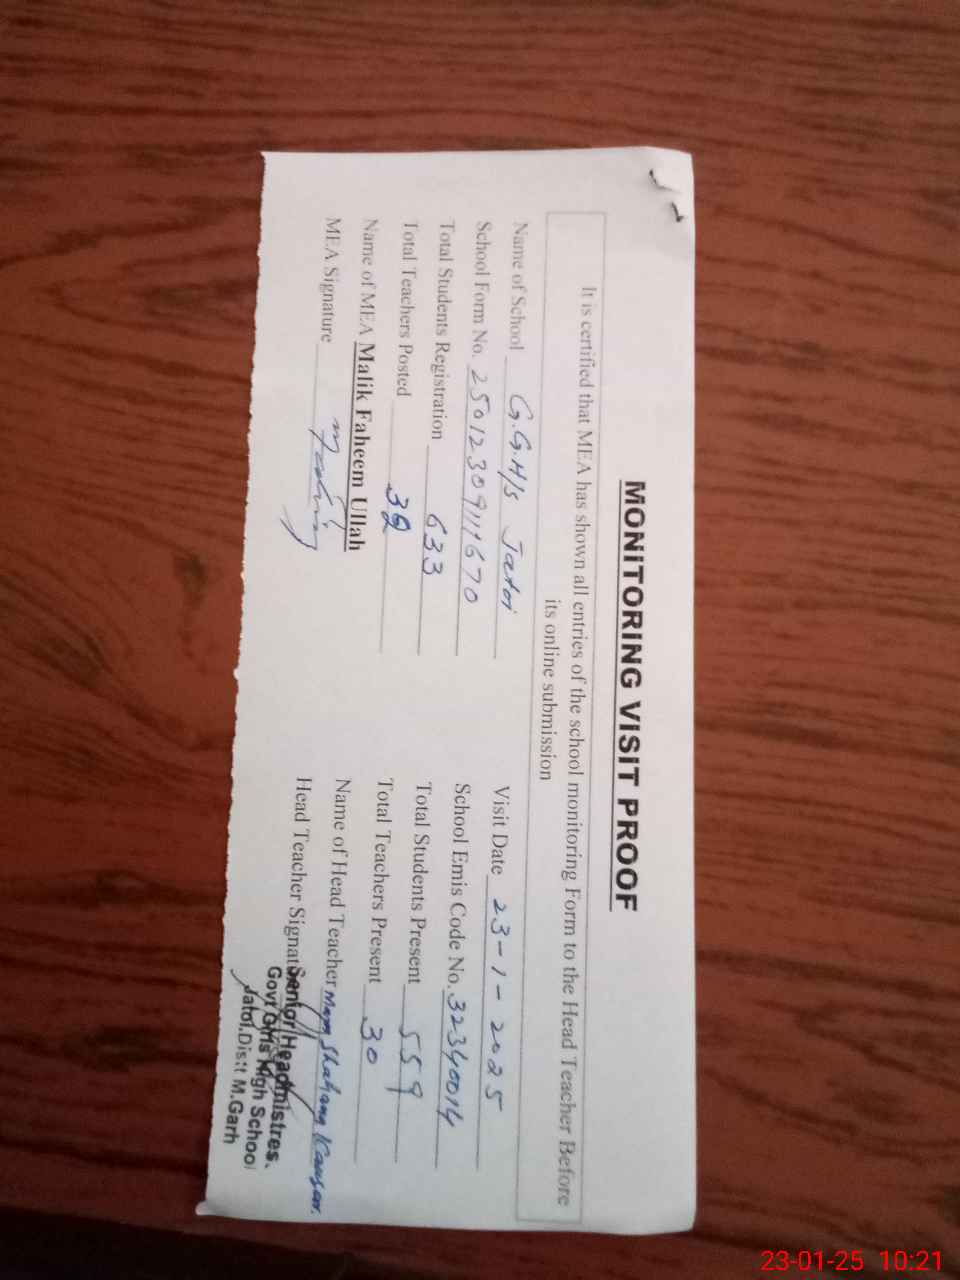 MONITORING VISIT PROOF
It is certified that MEA has shown all entries of the school monitoring Form to the Head Teacher Before
its online submission
Name of School G.G.H/S Jatoi Visit Date 23-1-2025
School Form No. 25012309111670 School Emis Code No. 32340014
Total Students Registration 633 Total Students Present 559
Total Teachers Posted 32 Total Teachers Present 30
Name of MEA Malik Faheem Ullah Name of Head Teacher Mam Kausar.
MEA Signature Head Teacher Signat
Senior Headmistres.
Govt Girls High School
Jatoi.Distt M.Garh
23-01-25 10:21